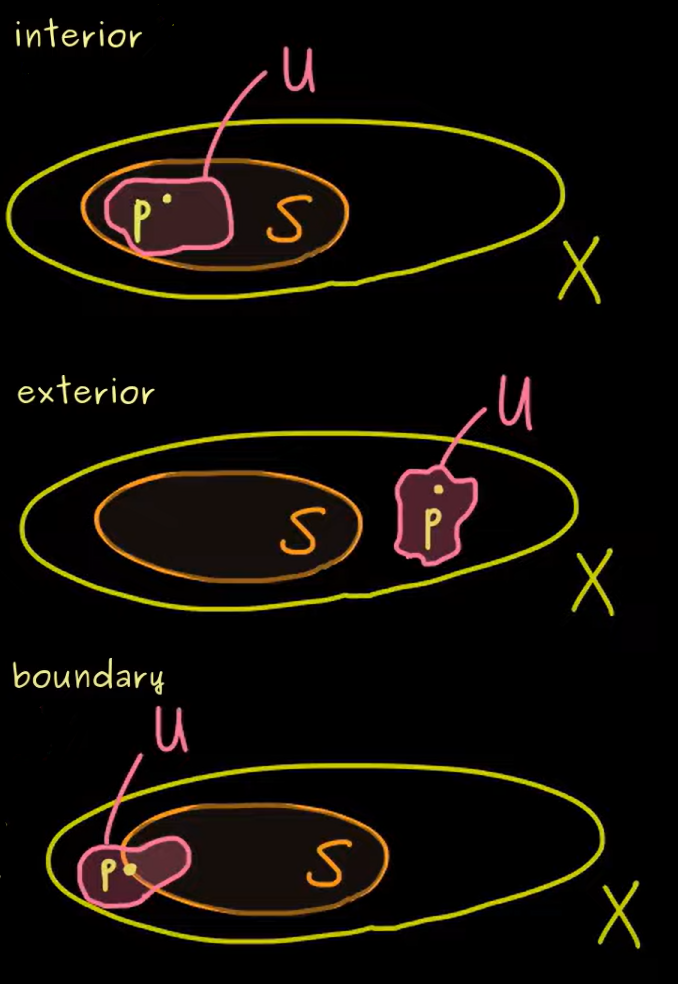 interior
U
p
S
X
exterior
U
S
p
X
boundary
U
p
S
X